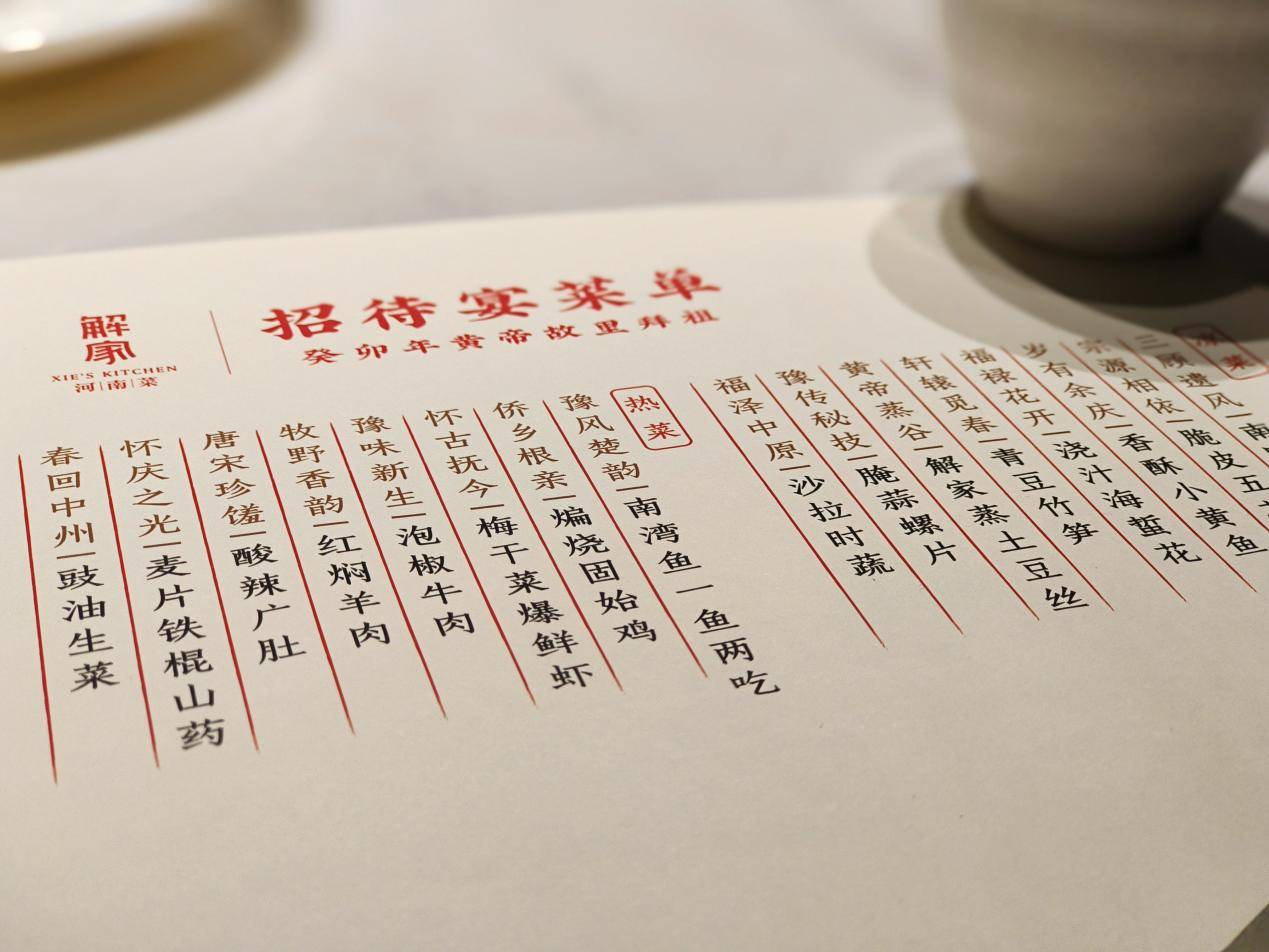 解家
XIE'S KITCHEN
河|南|菜
招待宴菜单
癸卯年黄帝故里拜祖
凉菜
三顾遗风|南
宗源相依|脆皮五
岁有余庆|香酥小黄鱼
福禄花开|浇汁海蜇花
轩辕觅春|青豆竹笋
黄帝蒸谷|解家蒸土豆丝
豫传秘技|腌蒜螺片
福泽中原|沙拉时蔬
热菜
豫风楚韵|南湾鱼一鱼两吃
侨乡根亲|煸烧固始鸡
怀古抚今|梅干菜爆鲜虾
豫味新生|泡椒牛肉
牧野香韵|红焖羊肉
唐宋珍馐|酸辣广肚
怀庆之光|麦片铁棍山药
春回中州|豉油生菜